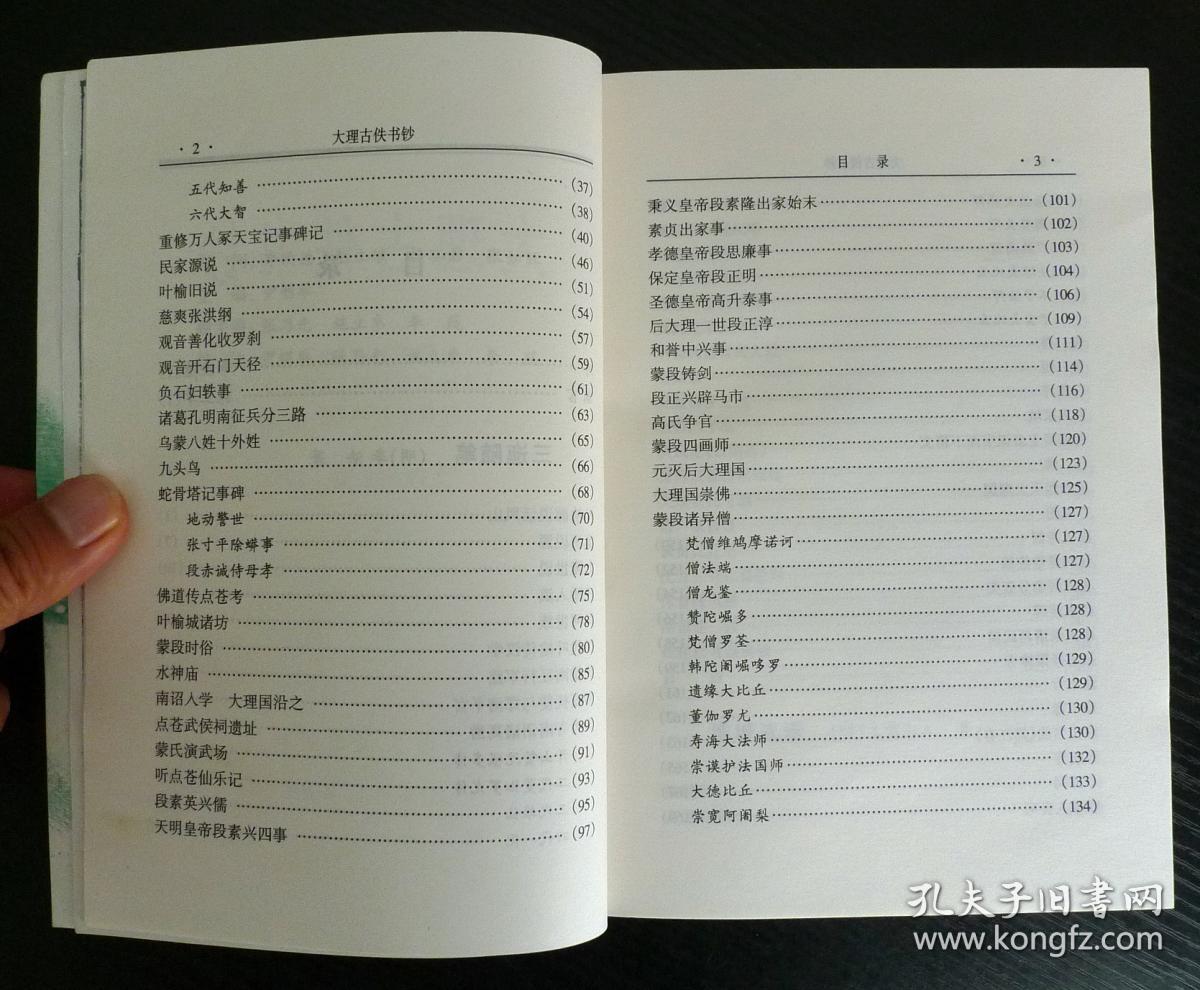 · 2 · 大理古佚书钞
五代知善 ……………………………………… (37)
六代大智 ……………………………………… (38)
重修万人冢天宝记事碑记 ……………………………… (40)
民家源说 ……………………………………… (46)
叶榆旧说 ……………………………………… (51)
慈爽张洪纲 ……………………………………… (54)
观音善化收罗刹 ……………………………………… (57)
观音开石门天径 ……………………………………… (59)
负石妇轶事 ……………………………………… (61)
诸葛孔明南征兵分三路 ……………………………… (63)
乌蒙八姓十外姓 ……………………………………… (65)
九头鸟 ……………………………………… (66)
蛇骨塔记事碑 ……………………………………… (68)
地动警世 ……………………………………… (70)
张寸平除蟒事 ……………………………………… (71)
段赤诚侍母孝 ……………………………………… (72)
佛道传点苍考 ……………………………………… (75)
叶榆城诸坊 ……………………………………… (78)
蒙段时俗 ……………………………………… (80)
水神庙 ……………………………………… (85)
南诏入学 大理国沿之 ……………………………… (87)
点苍武侯祠遗址 ……………………………………… (89)
蒙氏演武场 ……………………………………… (91)
听点苍仙乐记 ……………………………………… (93)
段素英兴儒 ……………………………………… (95)
天明皇帝段素兴四事 ……………………………… (97)
目 录 · 3 ·
秉义皇帝段素隆出家始末 ……………………………… (101)
素贞出家事 ……………………………………… (102)
孝德皇帝段思廉事 ……………………………………… (103)
保定皇帝段正明 ……………………………………… (104)
圣德皇帝高升泰事 ……………………………………… (106)
后大理一世段正淳 ……………………………………… (109)
和誉中兴事 ……………………………………… (111)
蒙段铸剑 ……………………………………… (114)
段正兴辟马市 ……………………………………… (116)
高氏争官 ……………………………………… (118)
蒙段四画师 ……………………………………… (120)
元灭后大理国 ……………………………………… (123)
大理国崇佛 ……………………………………… (125)
蒙段诸异僧 ……………………………………… (127)
梵僧维鸠摩诺诃 ……………………………………… (127)
僧法端 ……………………………………… (127)
僧龙鉴 ……………………………………… (128)
赞陀崛多 ……………………………………… (128)
梵僧罗荃 ……………………………………… (128)
韩陀阐崛哆罗 ……………………………………… (129)
遗缘大比丘 ……………………………………… (129)
董伽罗尤 ……………………………………… (130)
寿海大法师 ……………………………………… (130)
崇谟护法国师 ……………………………………… (132)
大德比丘 ……………………………………… (133)
崇宽阿阇梨 ……………………………………… (134)
孔夫子旧书网
www.kongfz.com